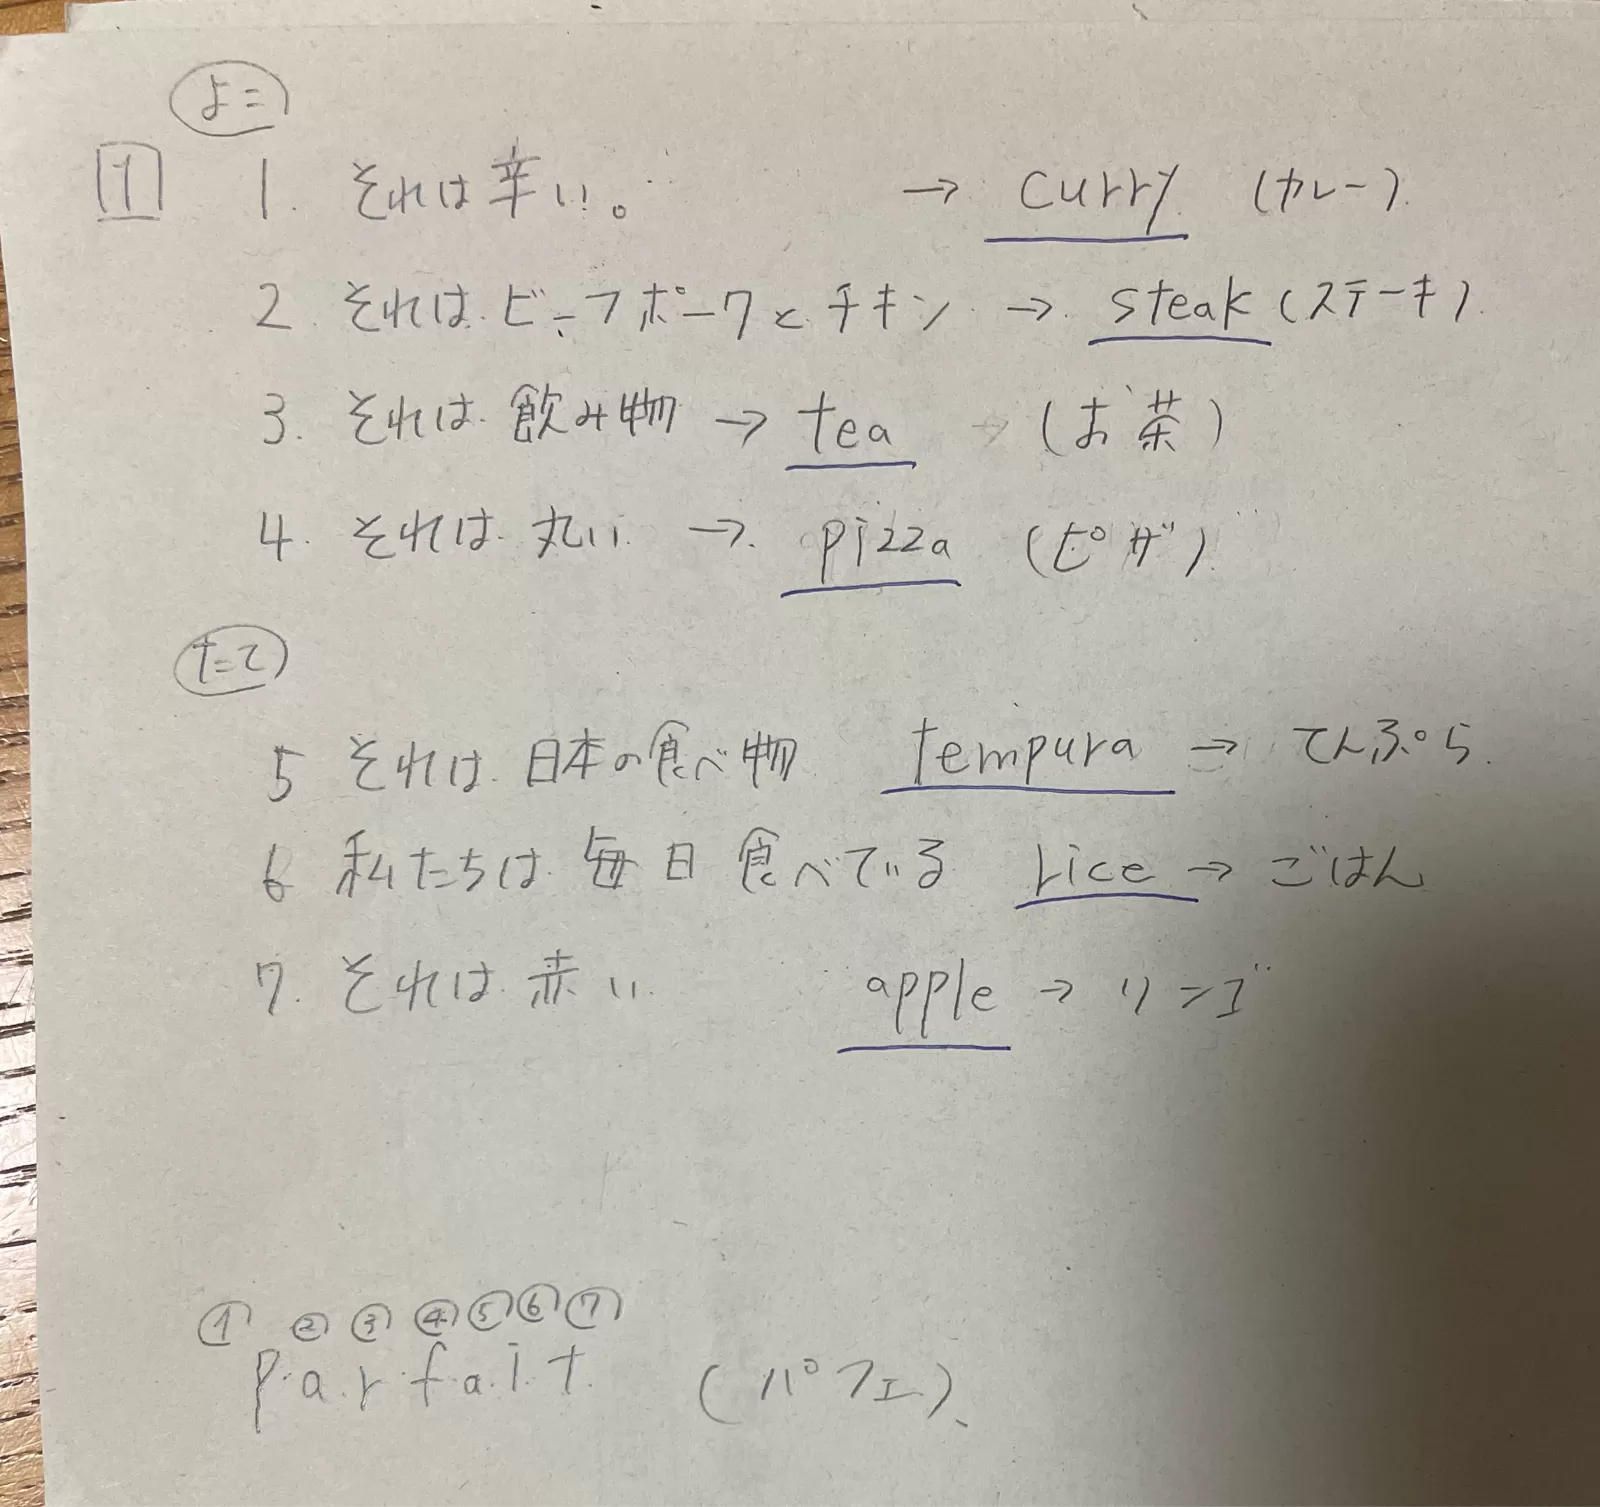 よこ
1 1. それは辛い。 → curry (カレー)
2 それはビーフポークとチキン → steak (ステーキ)
3. それは飲み物 → tea (お茶)
4. それは丸い → pizza (ピザ)
たて
5 それは日本の食べ物 tempura → てんぷら
6 私たちは毎日食べている rice → ごはん
7. それは赤い apple → リンゴ
① ② ③ ④ ⑤ ⑥ ⑦
p a r f a i t (パフェ)